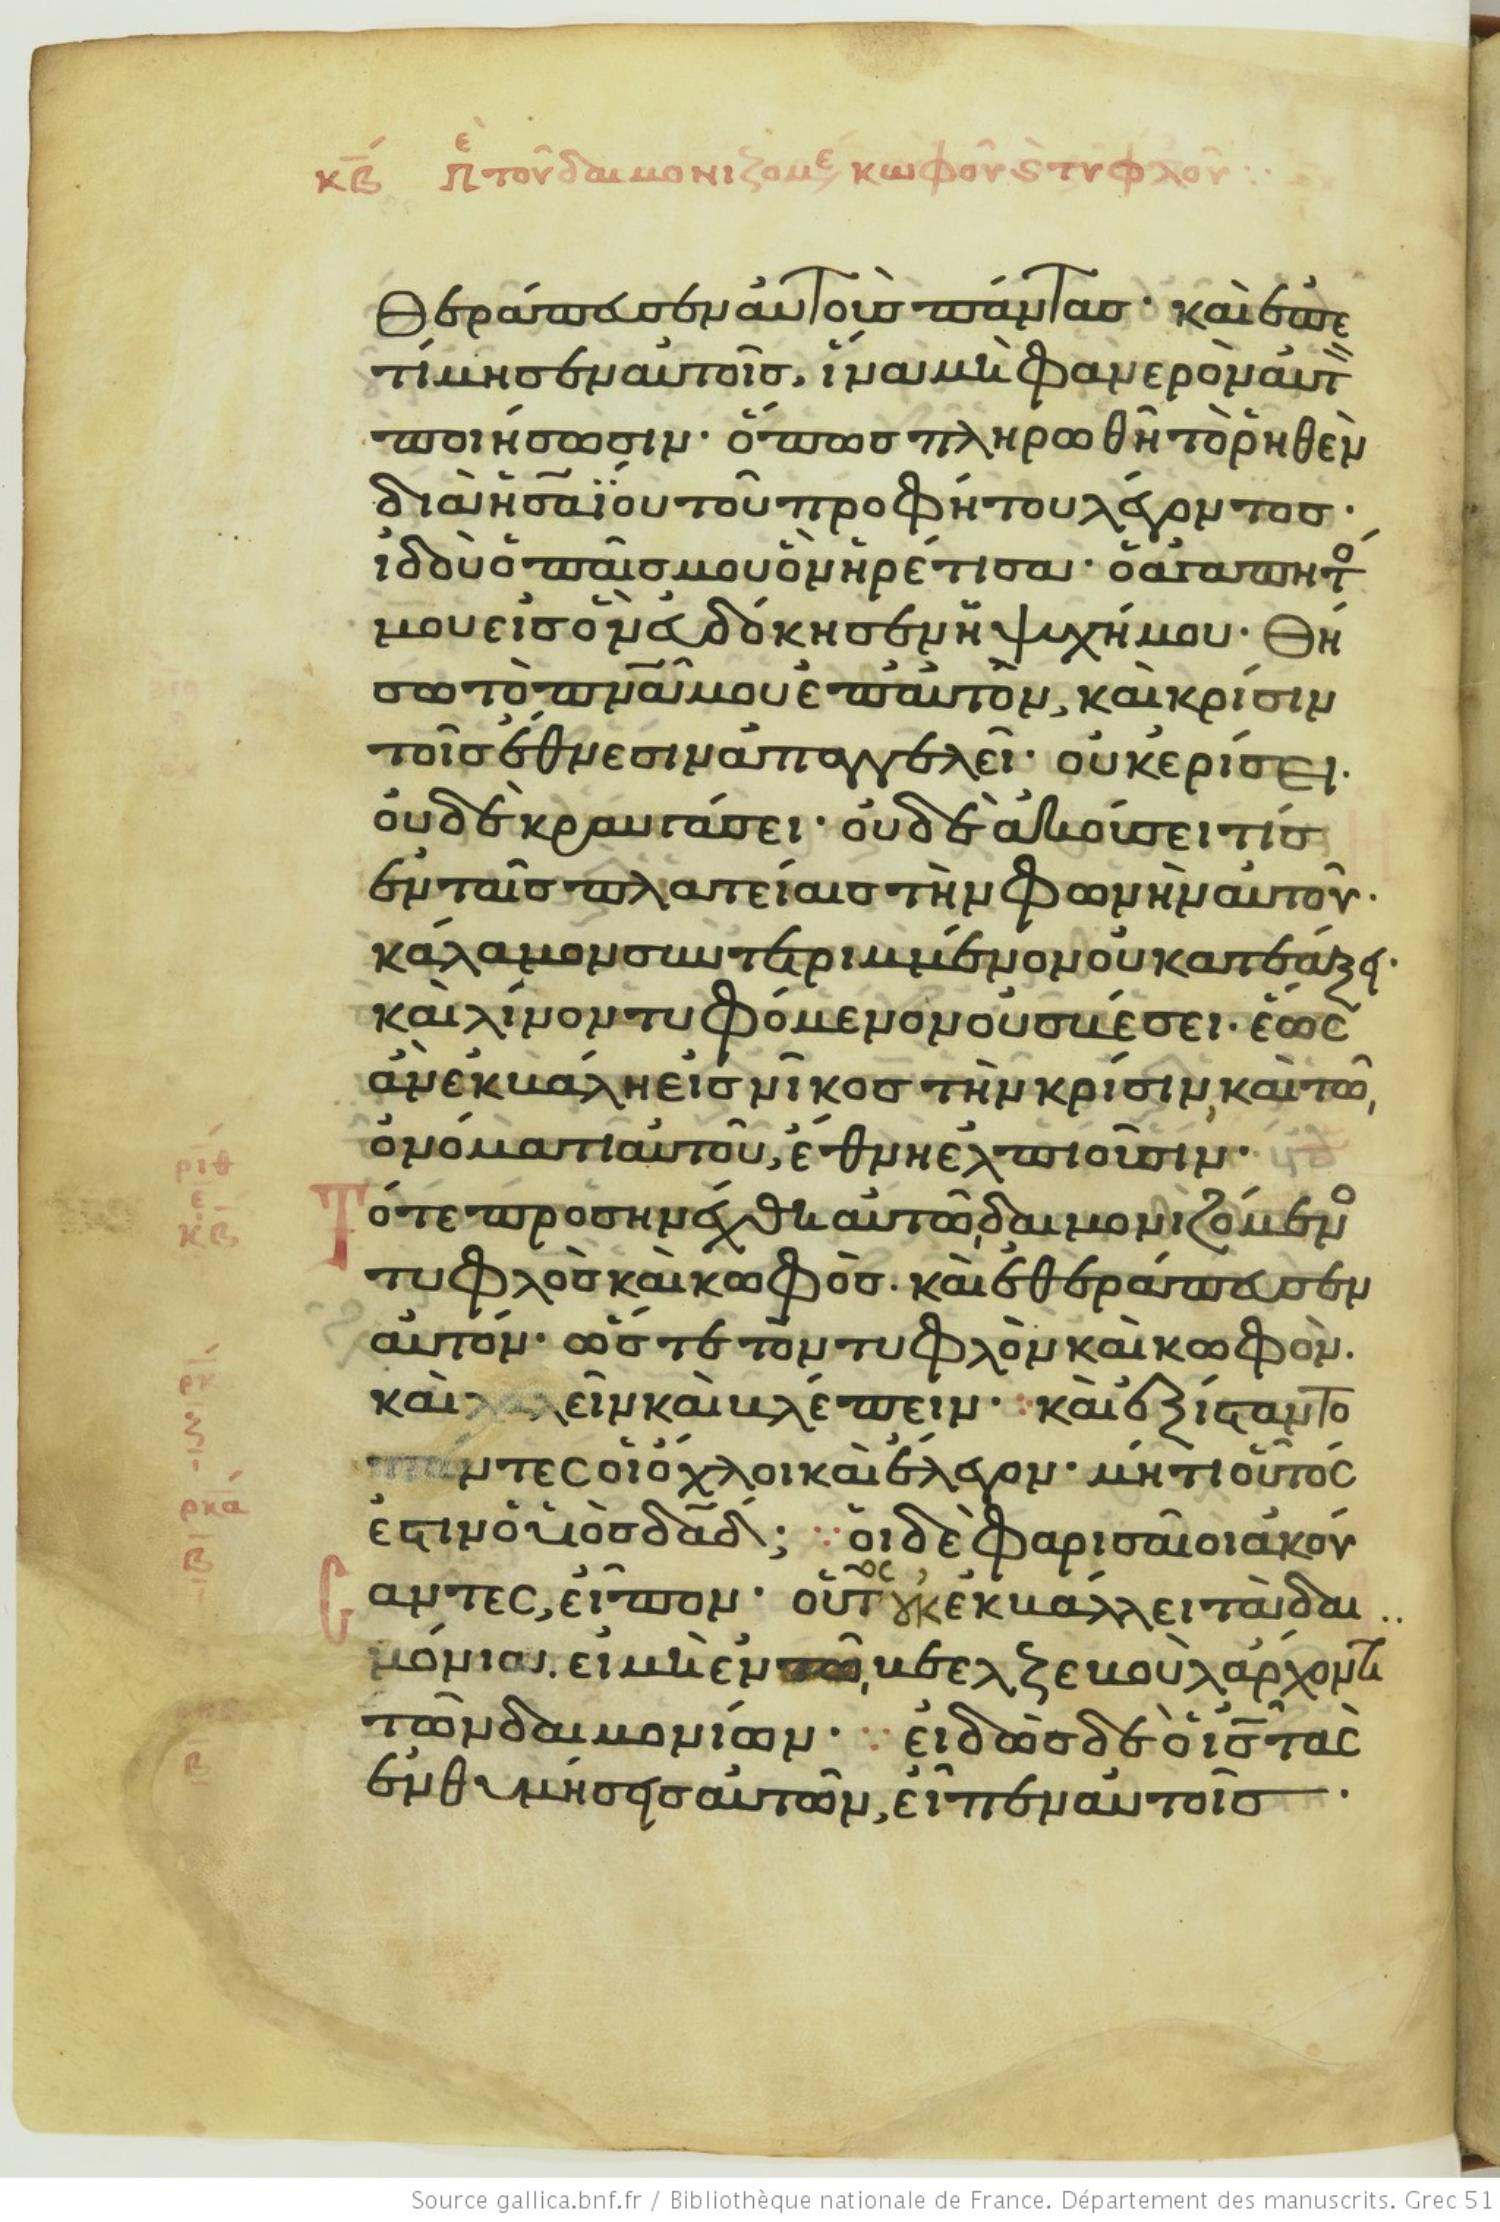 κβ περὶ τοῦ δαιμονιζομε κωφοῦ ϛ τυφλοῦ
Θεράπευσεν αὐτοὺς πάντας· καὶ ἐπε
τίμησεν αὐτοῖς, ἵνα μὴ φανερὸν αὐτ
ποιήσωσιν· ὅπως πληρωθῆ τὸ ῥηθὲν
διὰ ἠσαΐου τοῦ προφήτου λέγοντος·
ἰδοὺ ὁ παῖς μου ὃν ἡρέτισα· ὁ ἀγαπητό
μου εἰς ὃν εὐδόκησεν ἡ ψυχή μου· Θή
σω τὸ πνᾶ μου ἐπ αὐτὸν, καὶ κρίσιν
τοῖς ἔθνεσιν ἀπαγγελεῖ· οὐκ ερίσει·
οὐδὲ κραυγάσει· οὐδὲ ἀκούσει τίς
ἐν ταῖς πλατείαις τὴν φωνὴν αὐτοῦ·
κάλαμον συντετριμμένον οὐ κατεάξει·
καὶ λίνον τυφόμενον οὐ σβέσει· ἕως
ἂν ἐκβάλη εἰς νῖκος τὴν κρίσιν, καὶ τῶ
ὀνόματι αὐτοῦ, ἔθνη ἐλπιοῦσιν·
ριθ
κβ
Τότε προσηνέχθη αὐτῶ, δαιμονιζόμενο
τυφλὸς καὶ κωφὸς· καὶ ἐθεράπευσεν
αὐτόν· ὥστε τὸν τυφλὸν καὶ κωφὸν·
καὶ λαλεῖν καὶ βλέπειν· καὶ ἐξίσταντο
πάντες οἱ ὄχλοι καὶ ἔλεγον· μήτι οὗτός
ρκα
β
ἐστιν ὁ υἱὸς δᾱδ; οἱ δὲ φαρισαῖοι ἀκού
σαντες, εἶπον· οὗτος οὐκ ἐκβάλλει τὰ δαι
μόνια· εἰ μὴ ἐν τῶ, βεελζεβοὺλ ἄρχοντι
τῶν δαιμονίων· εἰδὼς δὲ ὁ ἰς τὰς
β
ἐνθυμήσεις αὐτῶν, εἶπεν αὐτοῖς·
Source gallica.bnf.fr / Bibliothèque nationale de France. Département des manuscrits. Grec 51